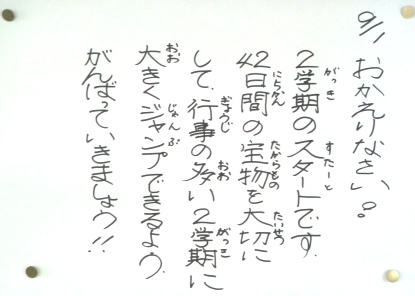 9/1 おかえりなさい。
2学期のスタートです。
42日間の宝物を大切に
して、行事の多い2学期に
大きくジャンプできるよう、
がんばっていきましょう!!